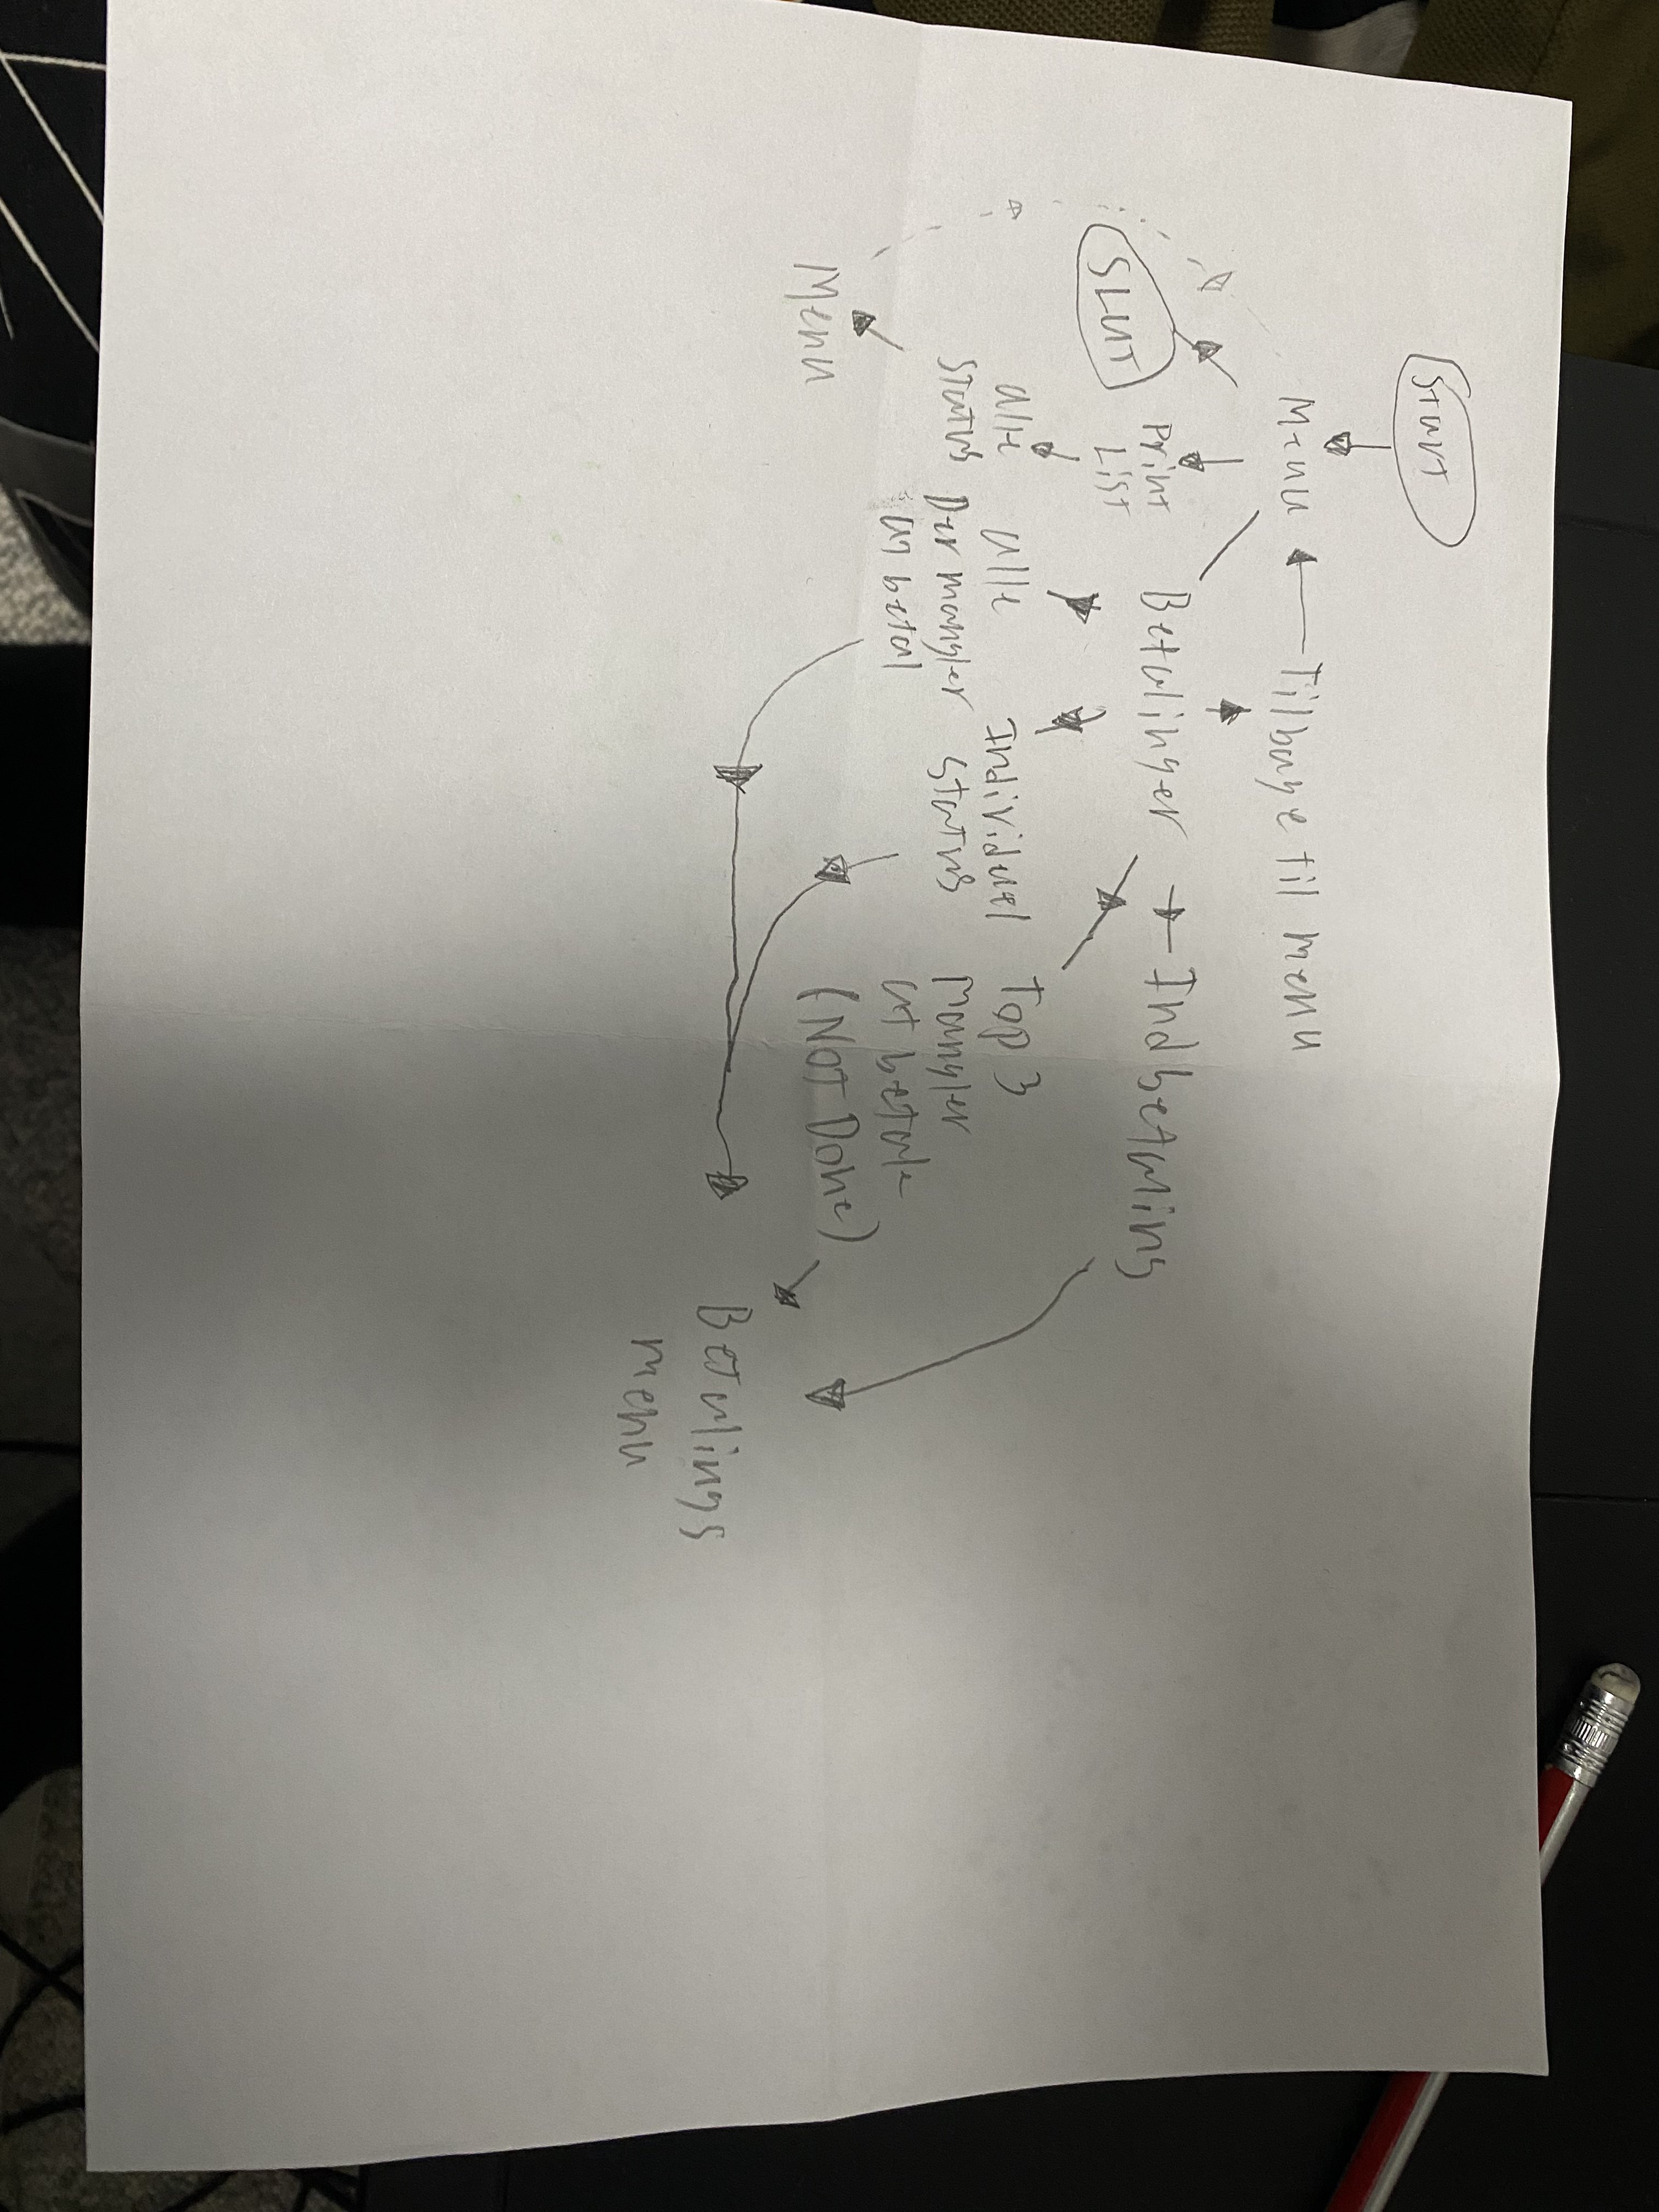 Start
Menu
Tilbage til menu
SLUT
Print
List
Betalinger
Indbetaling
alle
status
alle
Der mangler
at betal
Individuel
status
Top 3
Mangler
at betale
(NOT Done)
Menu
Betalings
menu